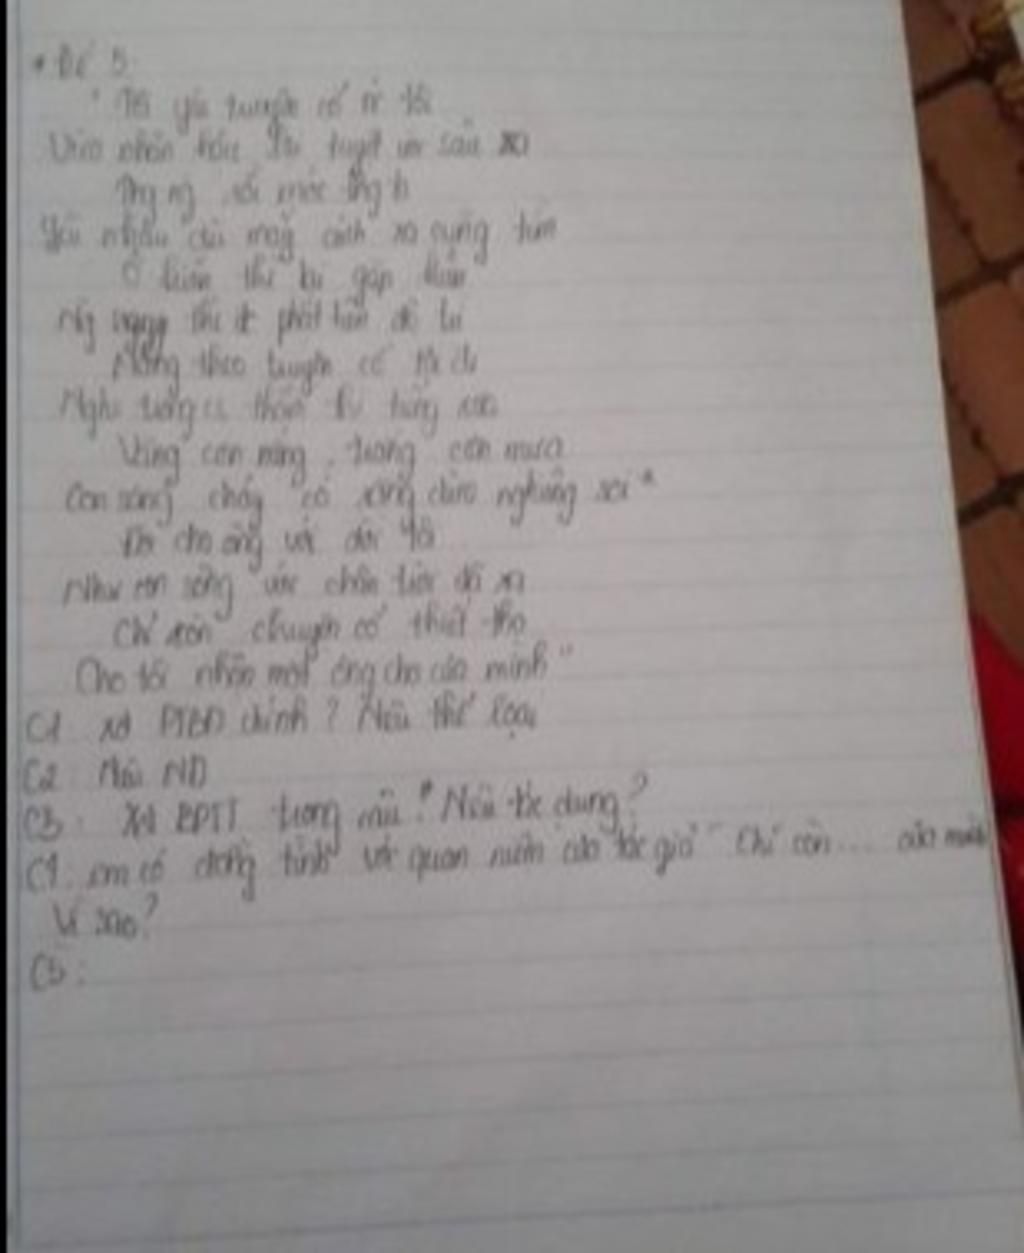 * Đề 5:
" Tôi yêu truyện cổ tôi
Vừa nhân hậu lại tuyệt vời sâu xa
Thg ng rồi mới thg ta
Yêu nhau dù mấy cách xa cũng tìm
Ở hiền thì lại gặp hiền
Ng ngay thì phật tiên độ trì
Mang theo truyện cổ tôi đi
Nghe trong cs thầm thì tiếng xưa
Vàng cơn nắng, trắng cơn mưa
Con sông chảy có rặng dừa nghiêng soi *
Đời cha ông với đời tôi
Như con sông với chân trời đã xa
Chỉ còn chuyện cổ thiết tha
Cho tôi nhận mặt ông cha của mình"
C1 xđ PTBĐ chính? Nêu thể loại
C2 Nêu ND
C3: Xđ BPTT trong câu *? Nêu tác dụng?
C4: em có đồng tình với quan niệm của tác giả " Chỉ còn... của mình
Vì sao?
C5: